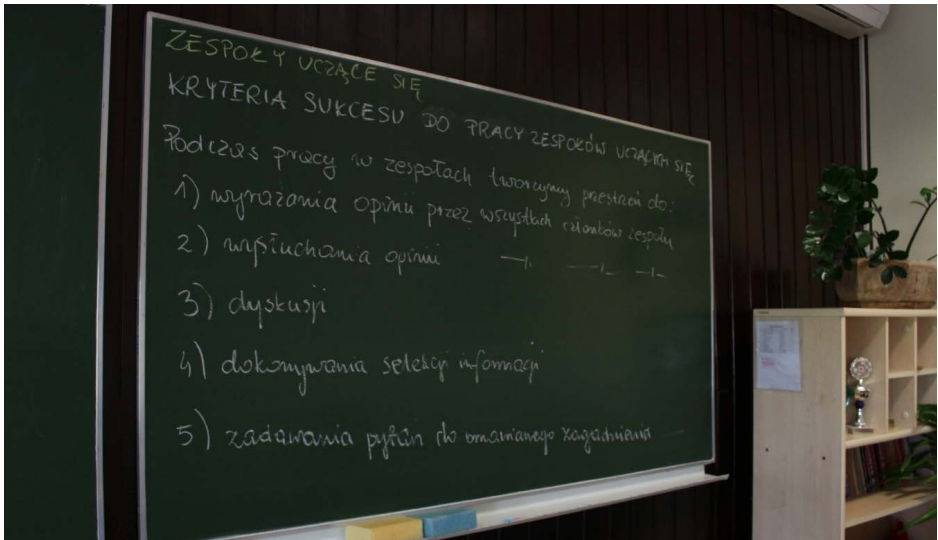 ZESPOŁY UCZĄCE SIĘ
KRYTERIA SUKCESU DO PRACY ZESPOŁÓW UCZĄCYCH SIĘ
Podczas pracy w zespołach tworzymy przestrzeń do:
1) wyrażania opinii przez wszystkich członków zespołu
2) wysłuchania opinii —„— —„— —„—
3) dyskusji
4) dokonywania selekcji informacji
5) zadawania pytań do omawianego zagadnienia